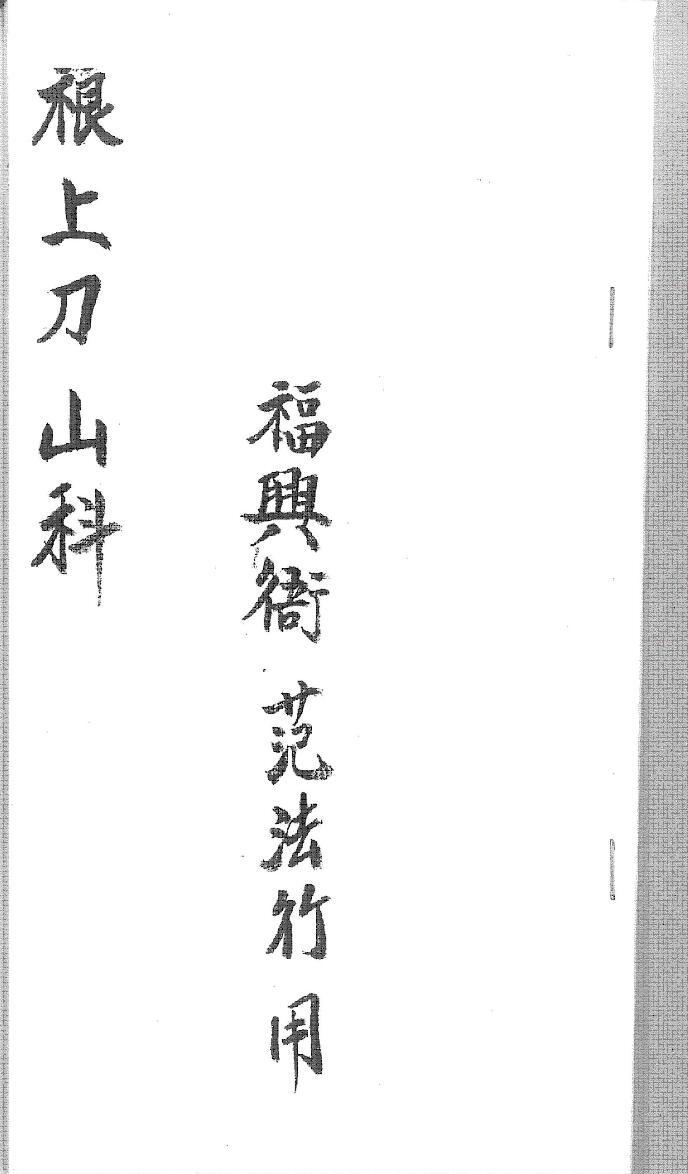 福興衙 范法行 用
根上刀山科